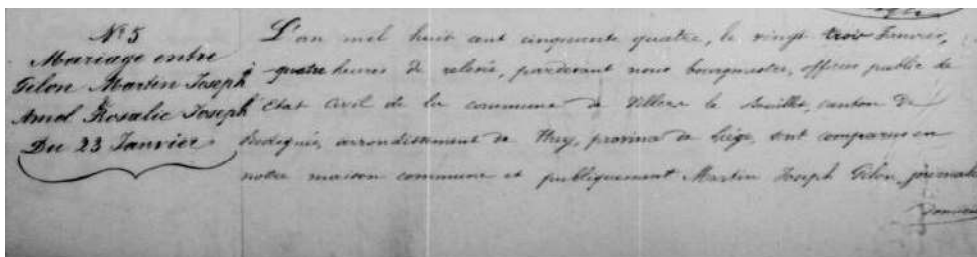 N° 5
Mariage entre
Gilon Martin Joseph
Amel Rosalie Joseph
Du 23 Janvier
L'an mil huit cent cinquante quatre, le vingt trois Janvier,
à quatre heures de relevée, pardevant nous bourgmestre, officier public de
l'Etat Civil de la commune de Villers le Bouillet, canton de
Bodegnée, arrondissement de Huy, province de Liége, sont comparus en
notre maison commune et publiquement Martin Joseph Gilon, journalier